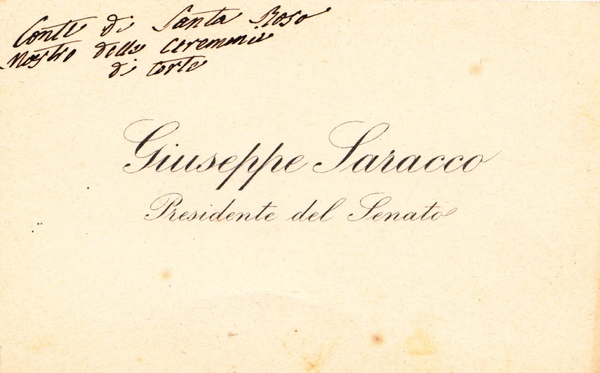 Conte di Santa Roso
Mastro delle Ceremonie
di Corte
Giuseppe Saracco
Presidente del Senato